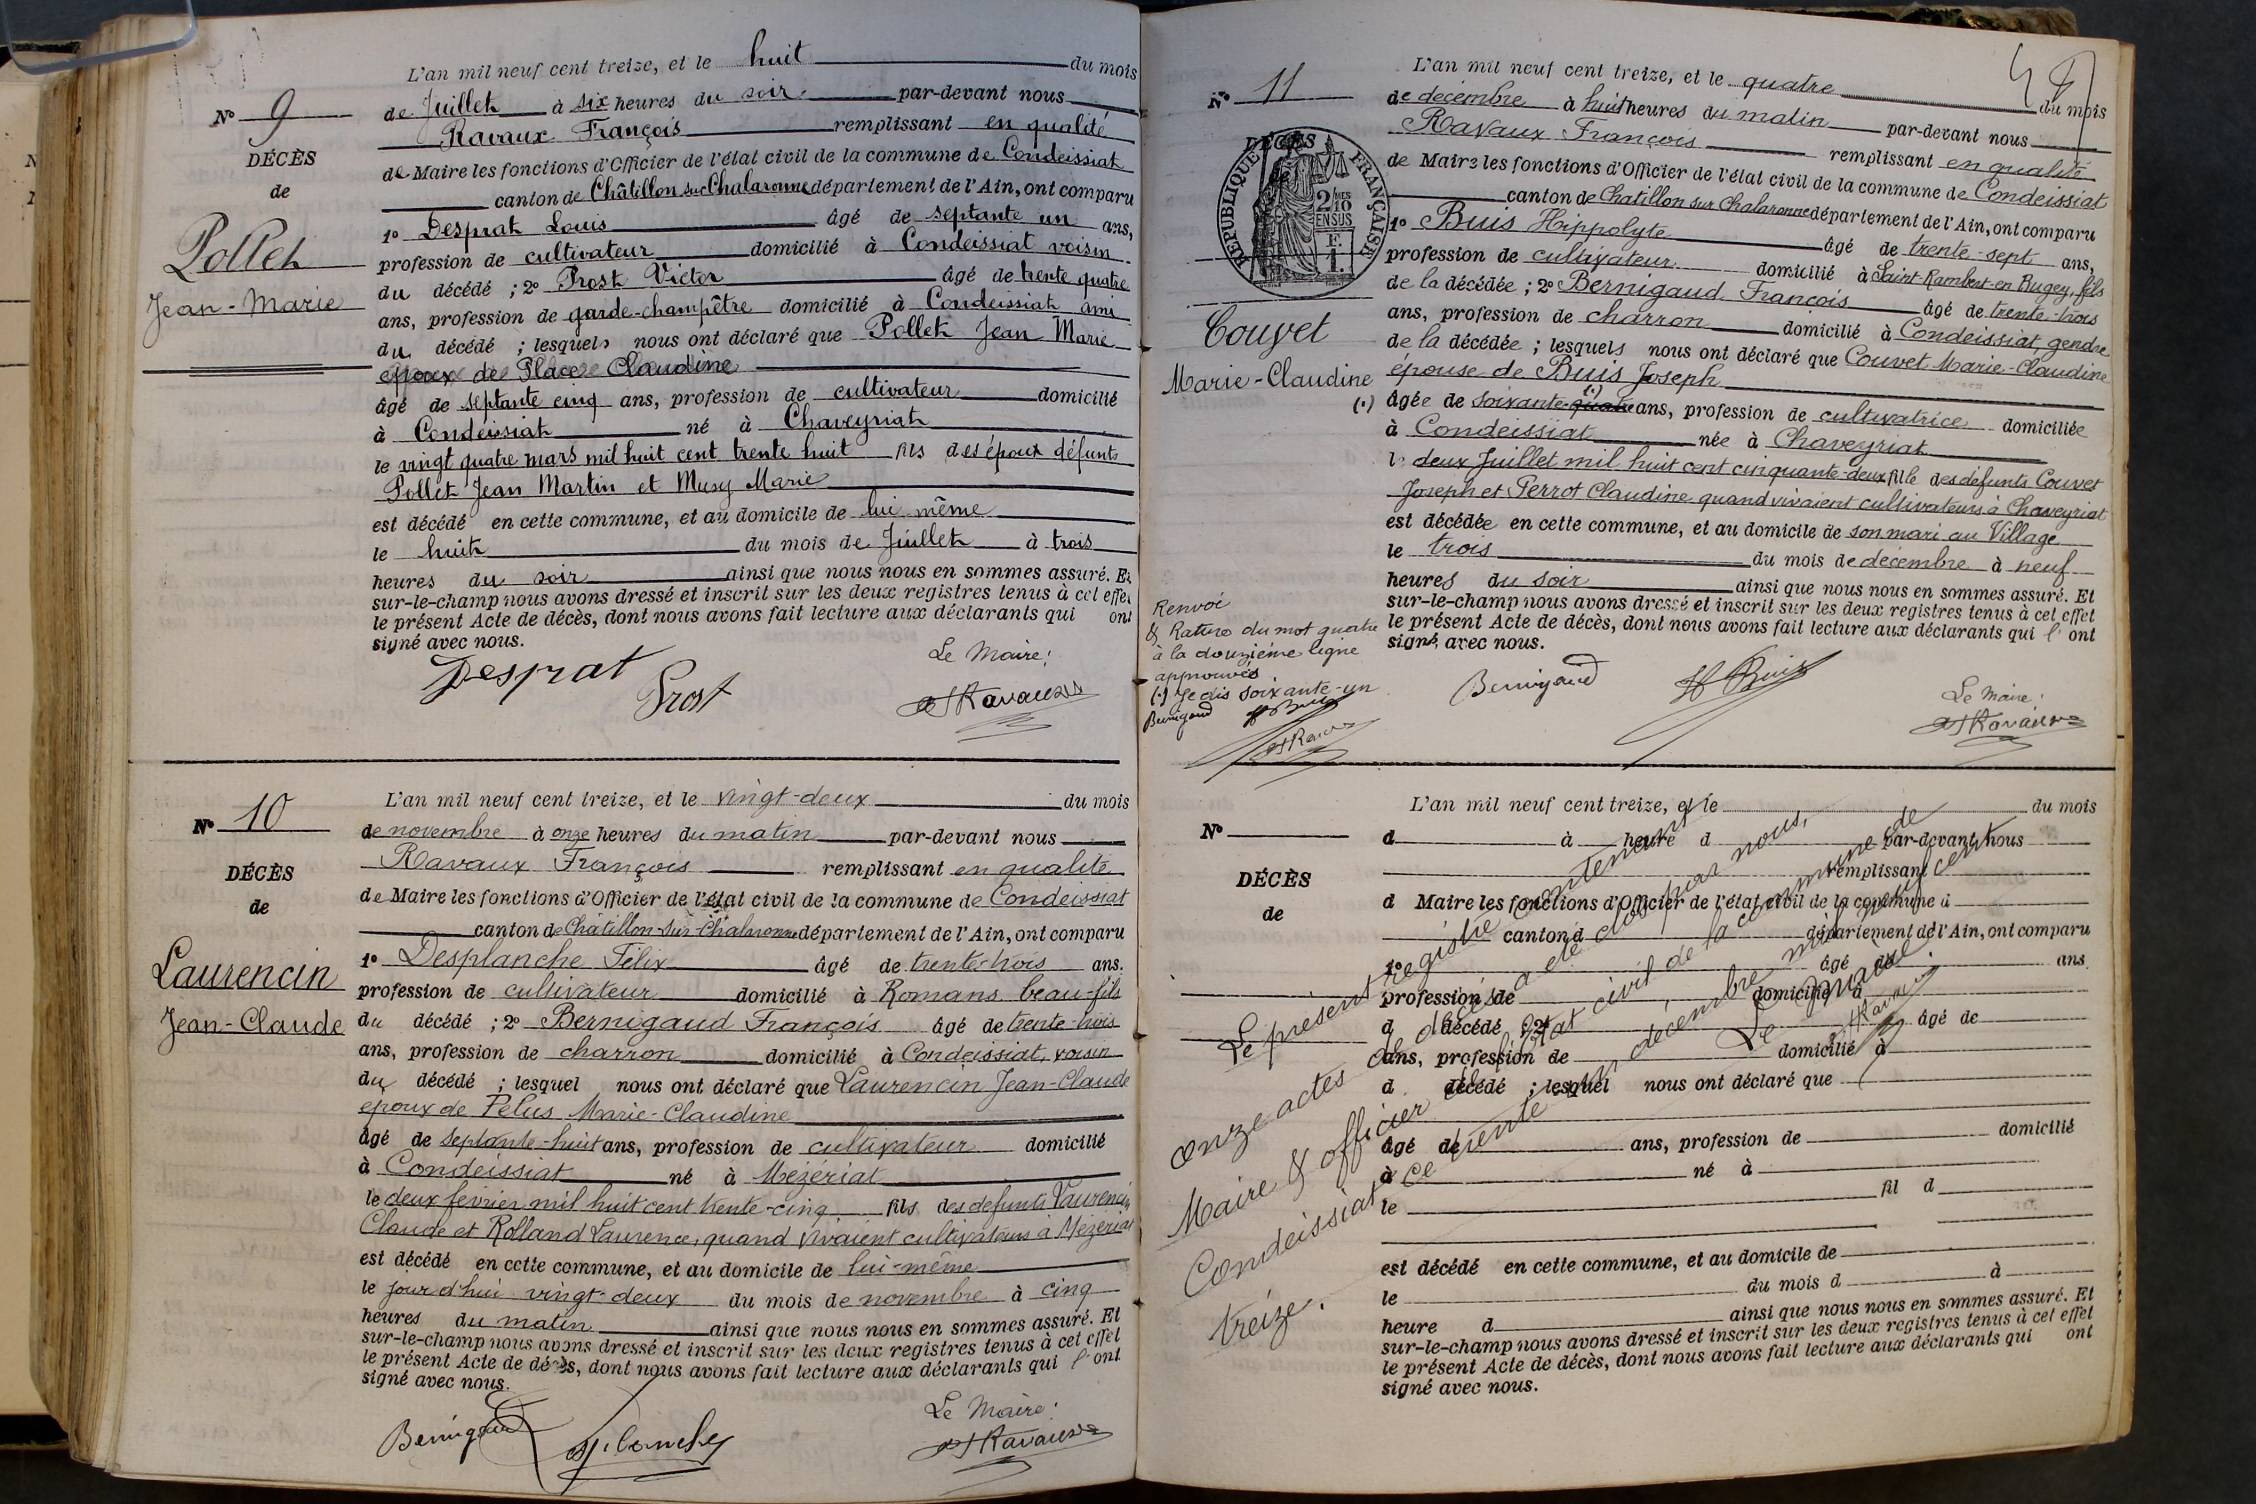 L'an mil neuf cent treize, et le huit du mois
No 9
de Juillet à six heures du soir par-devant nous
Ravaux François remplissant en qualité
DÉCÈS
de Maire les fonctions d'Officier de l'état civil de la commune de Condeissiat
de
canton de Châtillon sur Chalaronne département de l'Ain, ont comparu
Pollet
Jean-Marie
1o Desprat Louis âgé de septante un ans,
profession de cultivateur domicilié à Condeissiat voisin
du décédé ; 2o Prost Victor âgé de trente quatre
ans, profession de garde-champêtre domicilié à Condeissiat ami
du décédé ; lesquels nous ont déclaré que Pollet Jean Marie
époux de Place Claudine
âgé de septante cinq ans, profession de cultivateur domicilié
à Condeissiat né à Chaveyriat
le vingt quatre mars mil huit cent trente huit fils des époux défunts
Pollet Jean Martin et Musy Marie
est décédé en cette commune, et au domicile de lui même
le huit du mois de Juillet à trois
heures du soir ainsi que nous nous en sommes assuré. Et
sur-le-champ nous avons dressé et inscrit sur les deux registres tenus à cet effet
le présent Acte de décès, dont nous avons fait lecture aux déclarants qui ont
signé avec nous.
Le Maire :
Desprat Prost Ravaux
No 10
L'an mil neuf cent treize, et le vingt-deux du mois
de novembre à onze heures du matin par-devant nous
Ravaux François remplissant en qualité
DÉCÈS
de Maire les fonctions d'Officier de l'état civil de la commune de Condeissiat
de
canton de Châtillon-sur-Chalaronne département de l'Ain, ont comparu
Laurencin
Jean-Claude
1o Desplanche Félix âgé de trente-trois ans.
profession de cultivateur domicilié à Romans beau-fils
du décédé ; 2o Bernigaud François âgé de trente-trois
ans, profession de charron domicilié à Condeissiat, voisin
du décédé ; lesquel nous ont déclaré que Laurencin Jean-Claude
époux de Pelus Marie-Claudine
âgé de septante-huit ans, profession de cultivateur domicilié
à Condeissiat né à Mézériat
le deux février mil huit cent trente-cinq fils des défunts Laurencin
Claude et Rolland Laurence, quand vivaient cultivateurs à Mézériat
est décédé en cette commune, et au domicile de lui-même
le jour d'hui vingt-deux du mois de novembre à cinq
heures du matin ainsi que nous nous en sommes assuré. Et
sur-le-champ nous avons dressé et inscrit sur les deux registres tenus à cet effet
le présent Acte de décès, dont nous avons fait lecture aux déclarants qui l'ont
signé avec nous.
Le Maire :
Bernigaud Ravaux
L'an mil neuf cent treize, et le quatre du mois
No 11
de décembre à huit heures du matin par-devant nous
Ravaux François remplissant en qualité
DÉCÈS
RÉPUBLIQUE FRANÇAISE
2/10 EN SUS
de Maire les fonctions d'Officier de l'état civil de la commune de Condeissiat
canton de Chatillon sur Chalaronne département de l'Ain, ont comparu
1o Buis Hippolyte âgé de trente-sept ans,
profession de cultivateur domicilié à Saint-Rambert-en-Bugey, fils
de la décédée ; 2o Bernigaud François âgé de trente-trois
Couvet
Marie-Claudine
ans, profession de charron domicilié à Condeissiat, gendre
de la décédée ; lesquels nous ont déclaré que Couvet Marie-Claudine
épouse de Buis Joseph
(.) âgée de soixante-quatre (.) ans, profession de cultivatrice domiciliée
à Condeissiat née à Chaveyriat
le deux Juillet mil huit cent cinquante-deux fille des défunts Couvet
Joseph et Perrot Claudine quand vivaient cultivateurs à Chaveyriat
est décédée en cette commune, et au domicile de son mari au Village
le trois du mois de décembre à neuf
heures du soir ainsi que nous nous en sommes assuré. Et
sur-le-champ nous avons dressé et inscrit sur les deux registres tenus à cet effet
le présent Acte de décès, dont nous avons fait lecture aux déclarants qui l'ont
signé avec nous.
Renvoi
& Rature du mot quatre
à la douzième ligne
approuvés
(.) Je dis soixante-un
Bernigaud H Buis
Ravaux
Bernigaud H Buis
Le Maire :
Ravaux
L'an mil neuf cent treize, et le du mois
No
d à heure d par-devant nous
remplissant
DÉCÈS
d Maire les fonctions d'Officier de l'état civil de la commune d
de
canton d département de l'Ain, ont comparu
1o âgé de ans
profession de domicilié à
d décédé ; 2o âgé de
ans, profession de domicilié à
d décédé ; lesquel nous ont déclaré que
âgé de ans, profession de domicilié
à né à
le fil d
est décédé en cette commune, et au domicile de
le du mois d à
heure d ainsi que nous nous en sommes assuré. Et
sur-le-champ nous avons dressé et inscrit sur les deux registres tenus à cet effet
le présent Acte de décès, dont nous avons fait lecture aux déclarants qui ont
signé avec nous.
Le présent registre contenant
onze actes de décès a été clos par nous,
Maire & officier de l'état civil de la commune de
Condeissiat ce trente un décembre mil neuf cent
treize.
Le Maire
Ravaux